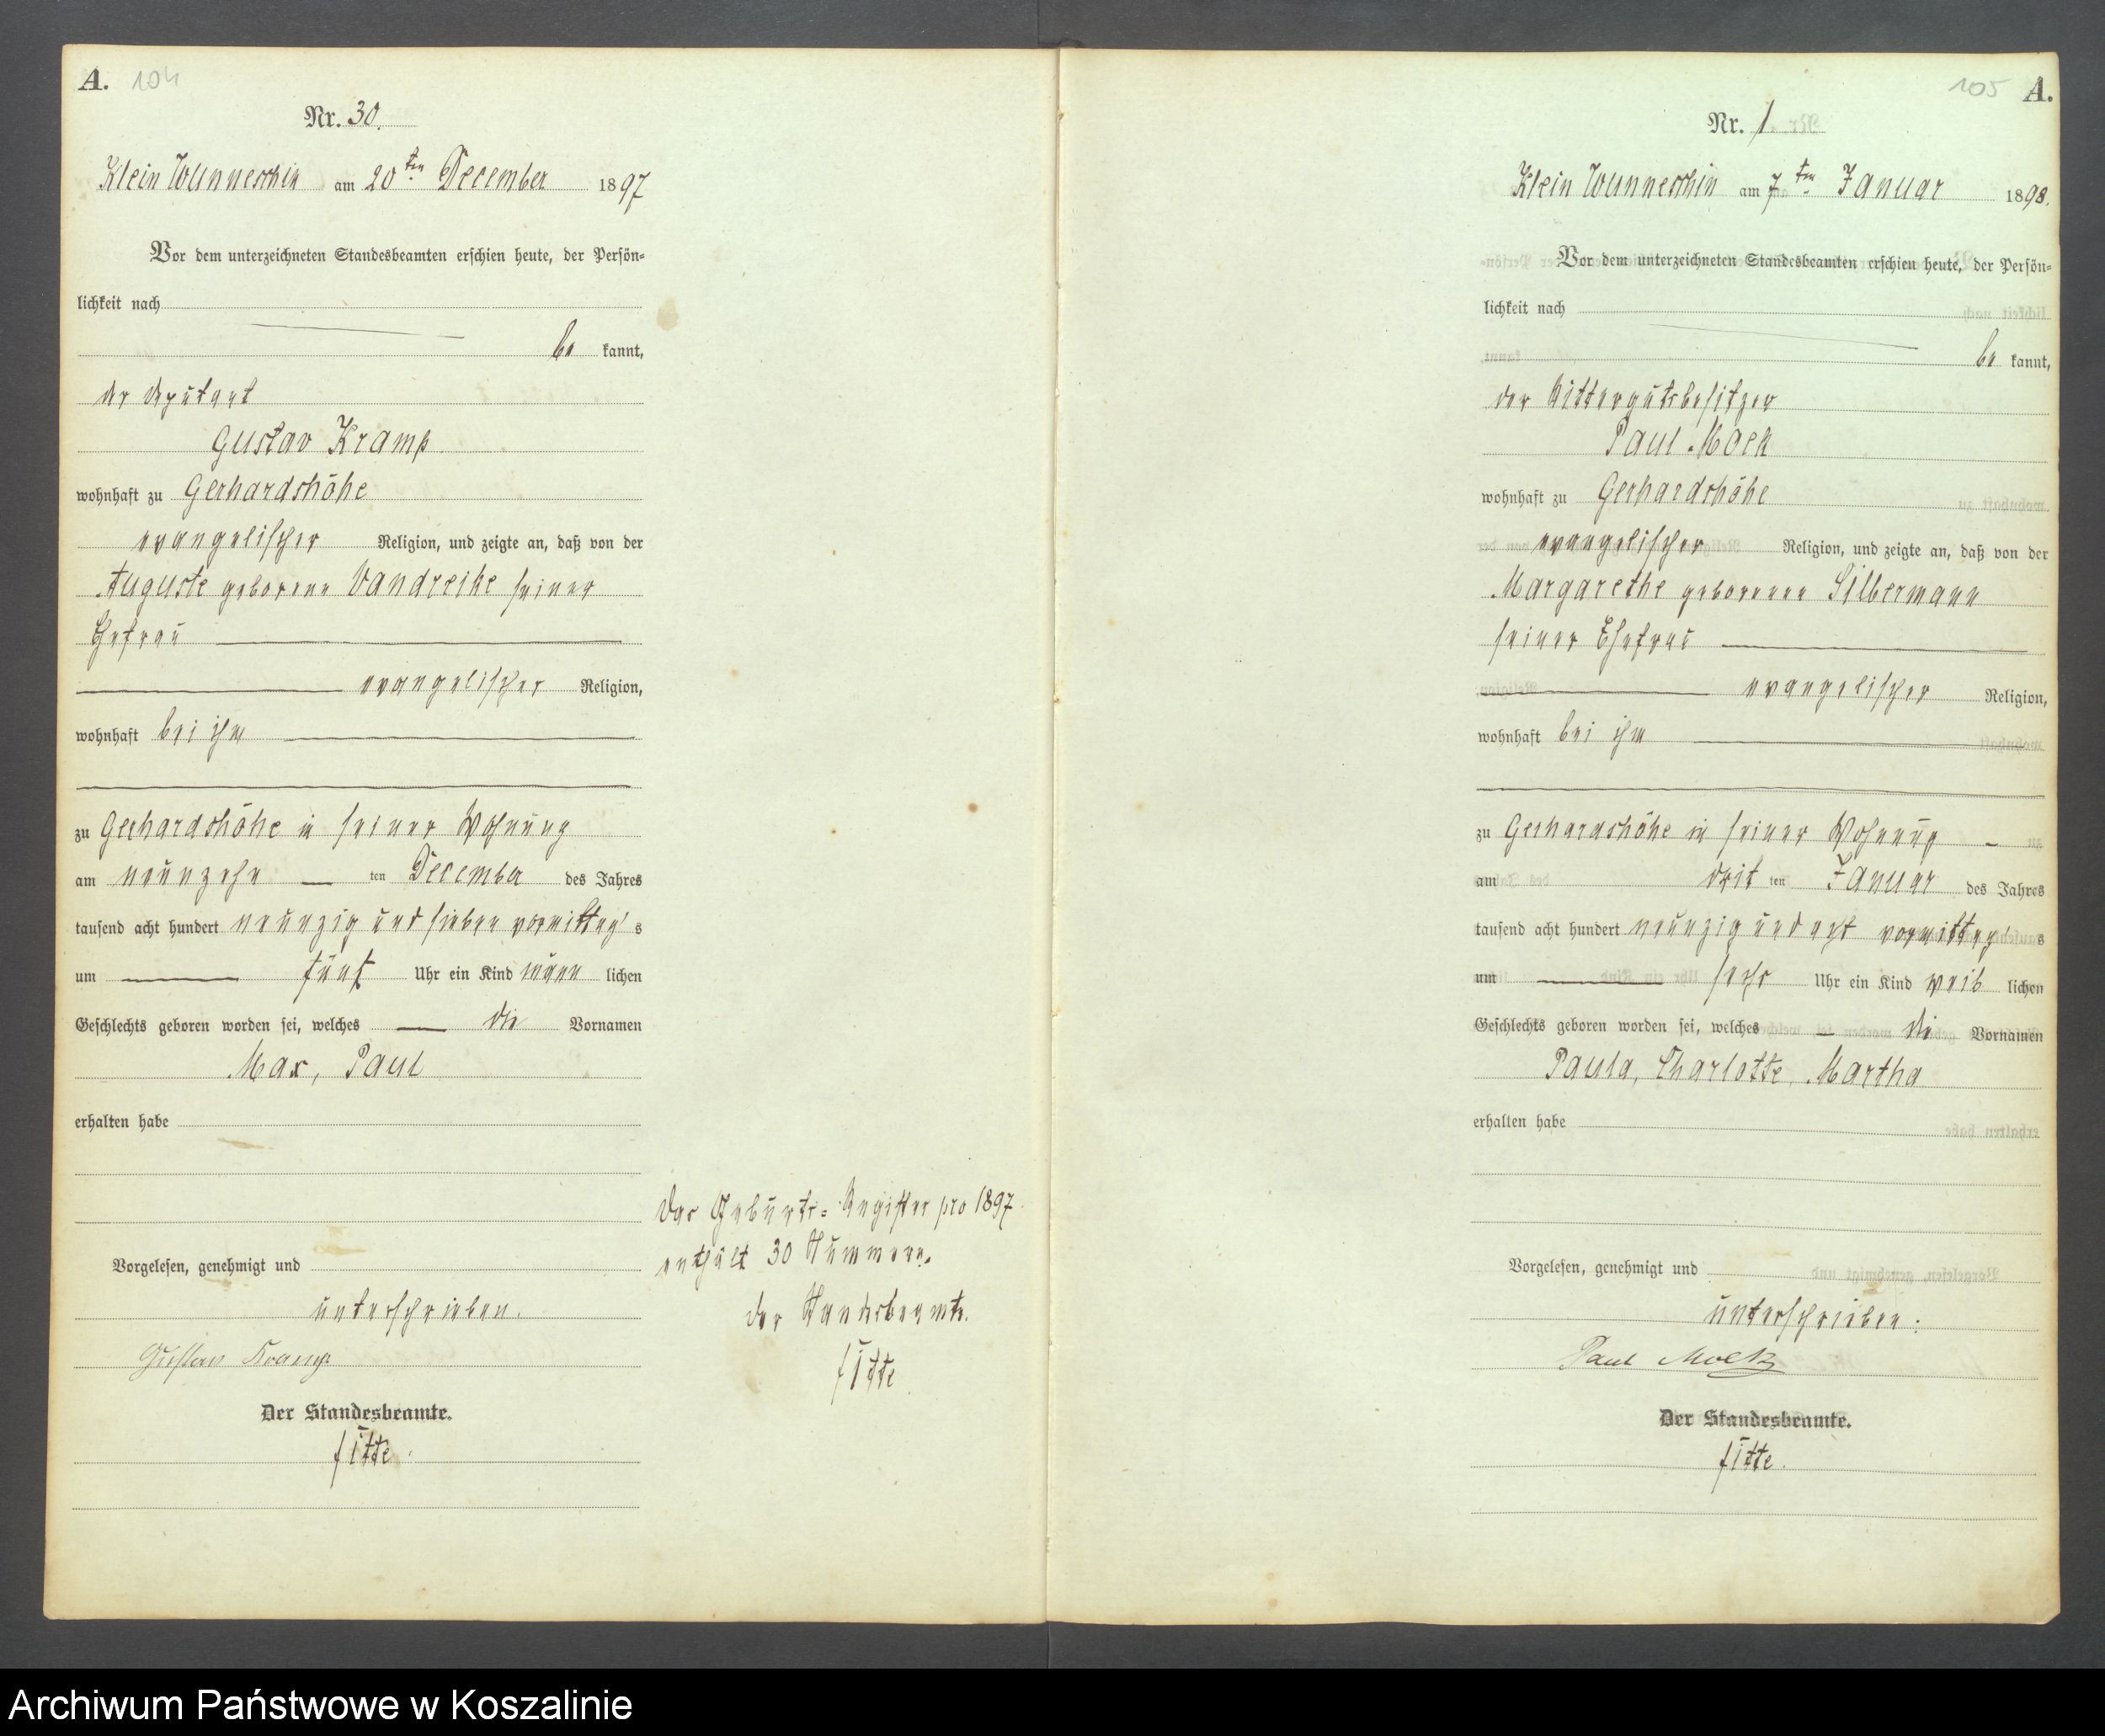 A. 104
Nr. 30.
Klein Wunneschin am 20ten December 1897
Vor dem unterzeichneten Standesbeamten erschien heute, der Persön=
lichkeit nach
be kannt,
der Deputant
Gustav Kramp
wohnhaft zu Gerhardshöhe
evangelischer Religion, und zeigte an, daß von der
Auguste geborene Vandreike seiner
Ehefrau
evangelischer Religion,
wohnhaft bei ihm
zu Gerhardshöhe in seiner Wohnung
am neunzehn ten December des Jahres
tausend acht hundert neunzig und sieben vormittag's
um fünf Uhr ein Kind männ lichen
Geschlechts geboren worden sei, welches die Vornamen
Max, Paul
erhalten habe
Vorgelesen, genehmigt und
unterschrieben.
Gustav Kramp
Der Standesbeamte.
Fitte.
Das Geburts=Register pro 1897
enthält 30 Nummern.
Der Standesbeamte.
Fitte
105 A.
Nr. 1
Klein Wunneschin am 7ten Januar 1898.
Vor dem unterzeichneten Standesbeamten erschien heute, der Persön=
lichkeit nach
be kannt,
der Rittergutsbesitzer
Paul
wohnhaft zu Gerhardshöhe
evangelischer Religion, und zeigte an, daß von der
Margarethe geborenen Silbermann
seiner Ehefrau
evangelischer Religion,
wohnhaft bei ihm
zu Gerhardshöhe in seiner Wohnung
am drit ten Januar des Jahres
tausend acht hundert neunzig und acht vormittag's
um sechs Uhr ein Kind weib lichen
Geschlechts geboren worden sei, welches die Vornamen
Paula, Charlotte, Martha
erhalten habe
Vorgelesen, genehmigt und
unterschrieben.
Paul
Der Standesbeamte.
Fitte.
Archiwum Państwowe w Koszalinie